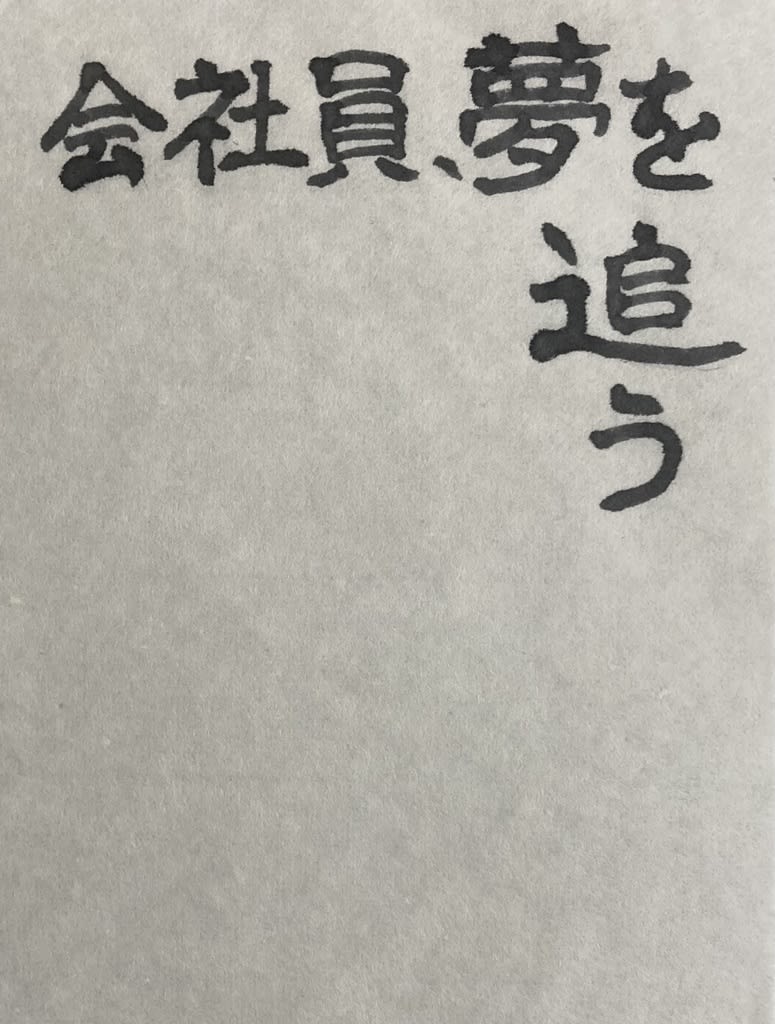 会社員、夢を
追う